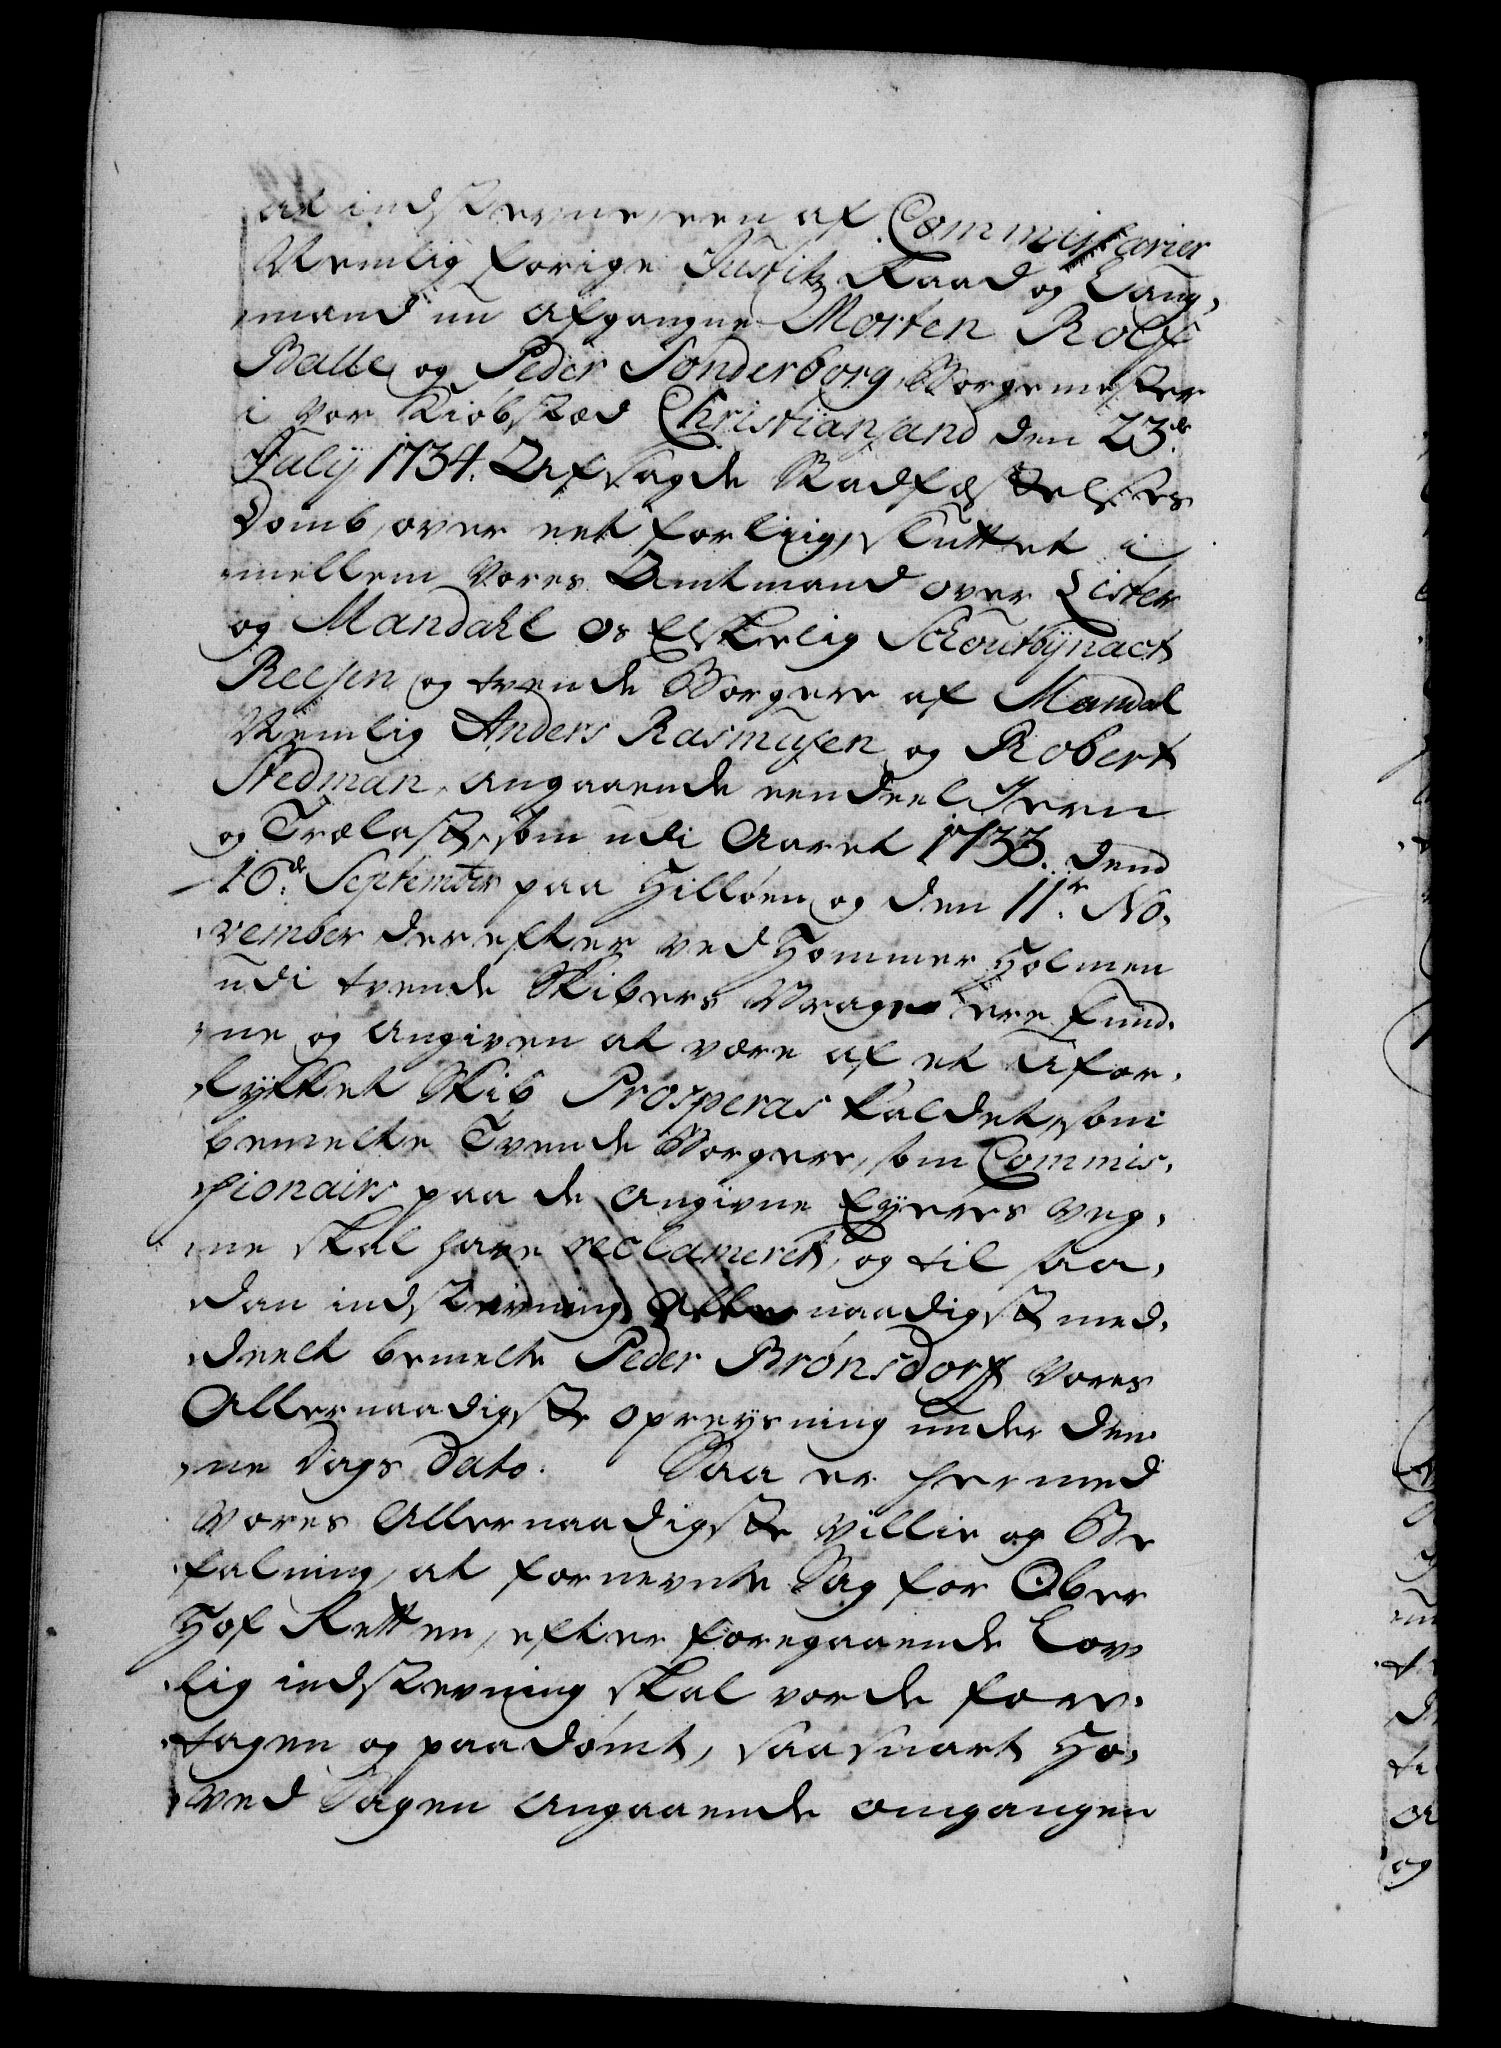 at indstevne, een af Commissarier
Nemlig forige Justitz Raad og Laug,
mand nu afgangne Morten Rolf
Balle og Peder Sønderborg, Borgemester
i vor Kiøbstæd Christiansand den 23de
Julij 1734. Afsagde Stadfæstelses
Domb, over eet forliig, sluttet i
mellem Vores Amtmand over Lister
og Mandahl os Elskelig Schoutbynact
Reesen og tvende Borgere af Mandal
Nemlig Anders Rasmusen og Robert
Stedman, angaaende eendeel Jern
og Trælast, som udi Aaret 1733. Dend
16de September paa Hilløen og den 11te No,
vember derefter ved Hommer Holmen
udi tvende Skibers Vrage ere fund,
ne og angiven at være af et for,
lykket Skib Prosperas kaldet, som
bemelte Tvende Borgere, som Commis,
sionairs paa de angivne Eyeres veg,
ne skal have reclameret, og til saa,
dan indstevning Allernaadigst med,
deelt bemelte Peder Brønsdorff Vores
Allernaadigste opreysning under den
ne Dags Dato. Saa er hermed
Vores Allernaadigste Villie og Be
falning, at fornevnte Sag for Ober
Hof Retten, efter foregaaende Lov,
lig indstevning skal vorde fore,
tagen og paadømt, saasnart Ho,
ved Sagen angaaende omgangen